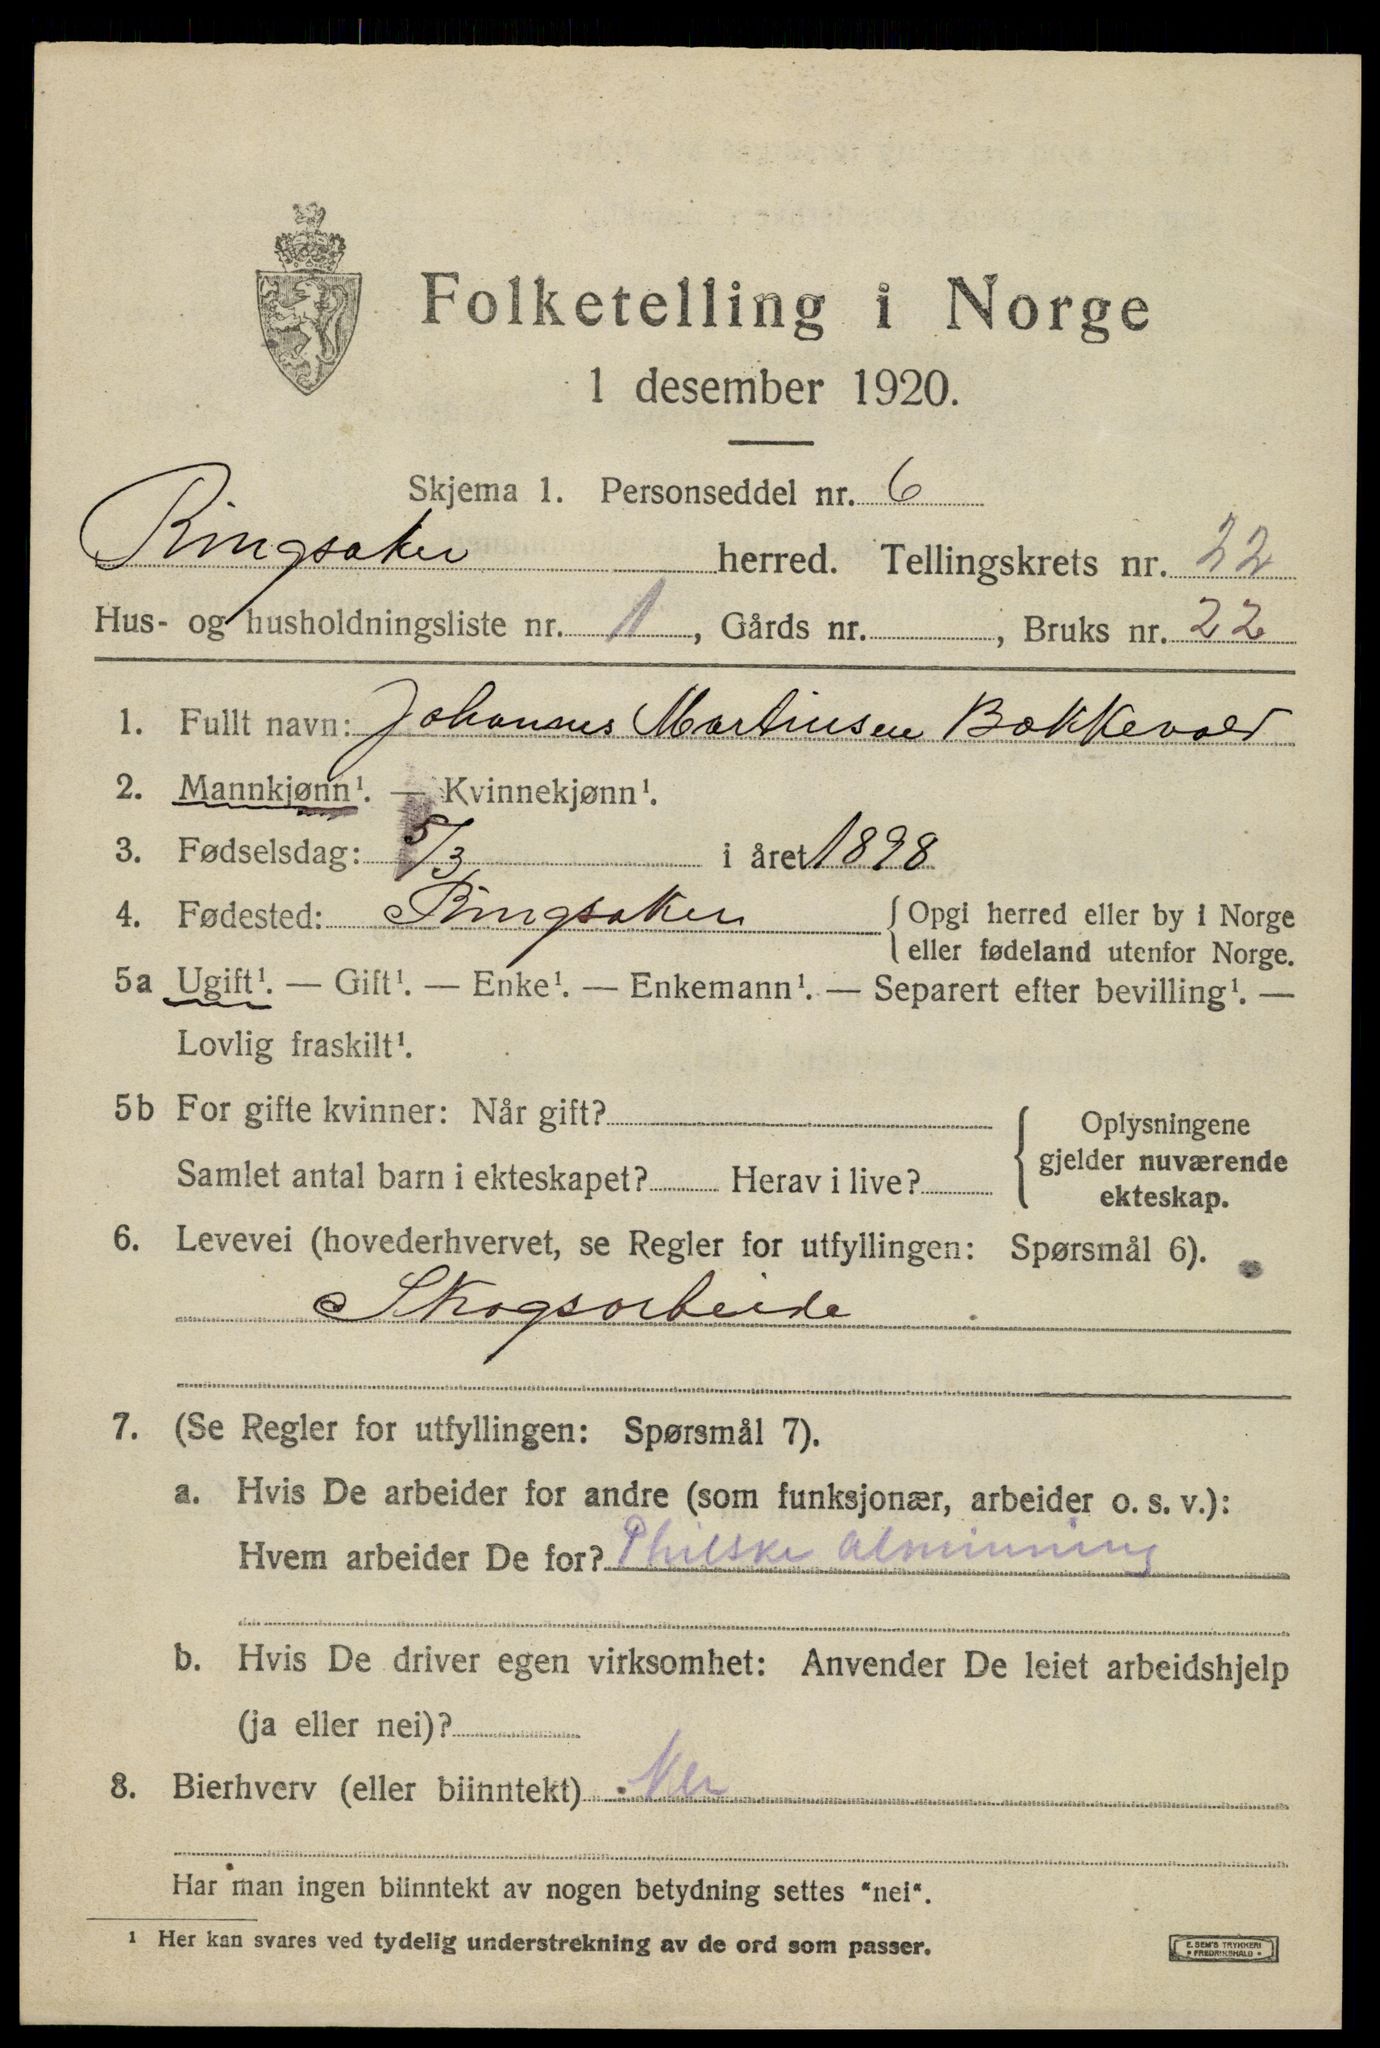 Folketelling i Norge
1 desember 1920.
Skjema 1. Personseddel nr. 6
Ringsaker herred. Tellingskrets nr. 22
Hus- og husholdningsliste nr. 1, Gårds nr. , Bruks nr. 22
1. Fullt navn: Johannes Martinsen Bakkevold
2. Mannkjønn¹. — Kvinnekjønn¹.
3. Fødselsdag: 5/3 i året 1898
4. Fødested: Ringsaker { Opgi herred eller by i Norge
eller fødeland utenfor Norge.
5a Ugift¹. — Gift¹. — Enke¹. — Enkemann¹. — Separert efter bevilling¹. —
Lovlig fraskilt¹.
5b For gifte kvinner: Når gift?
Samlet antal barn i ekteskapet? Herav i live?
Oplysningene
gjelder nuværende
ekteskap.
6. Levevei (hovederhvervet, se Regler for utfyllingen: Spørsmål 6).
Skogsarbeide
7. (Se Regler for utfyllingen: Spørsmål 7).
a. Hvis De arbeider for andre (som funksjonær, arbeider o. s. v.):
Hvem arbeider De for? Almenning
b. Hvis De driver egen virksomhet: Anvender De leiet arbeidshjelp
(ja eller nei)?
8. Bierhverv (eller biinntekt) Nei
Har man ingen biinntekt av nogen betydning settes "nei".
¹ Her kan svares ved tydelig understrekning av de ord som passer.
E. SEM'S TRYKKERI
• FREDRIKSHALD •